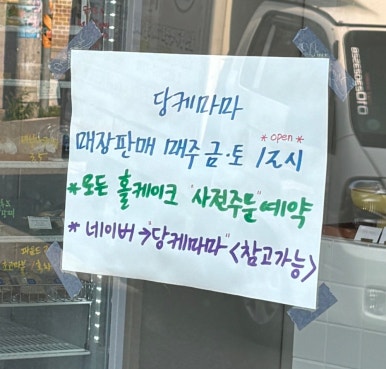 당케마마
*open*
매장판매 매주 금·토 12시
*모든 홀케이크 "사전주문" 예약
* 네이버→"당케마마" <참고가능>